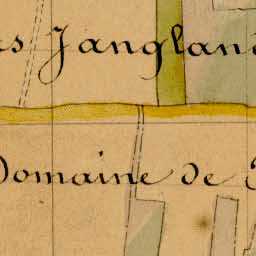 as Jangland
Domaine de